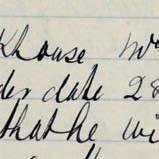 khouse
der date 28
that he wi